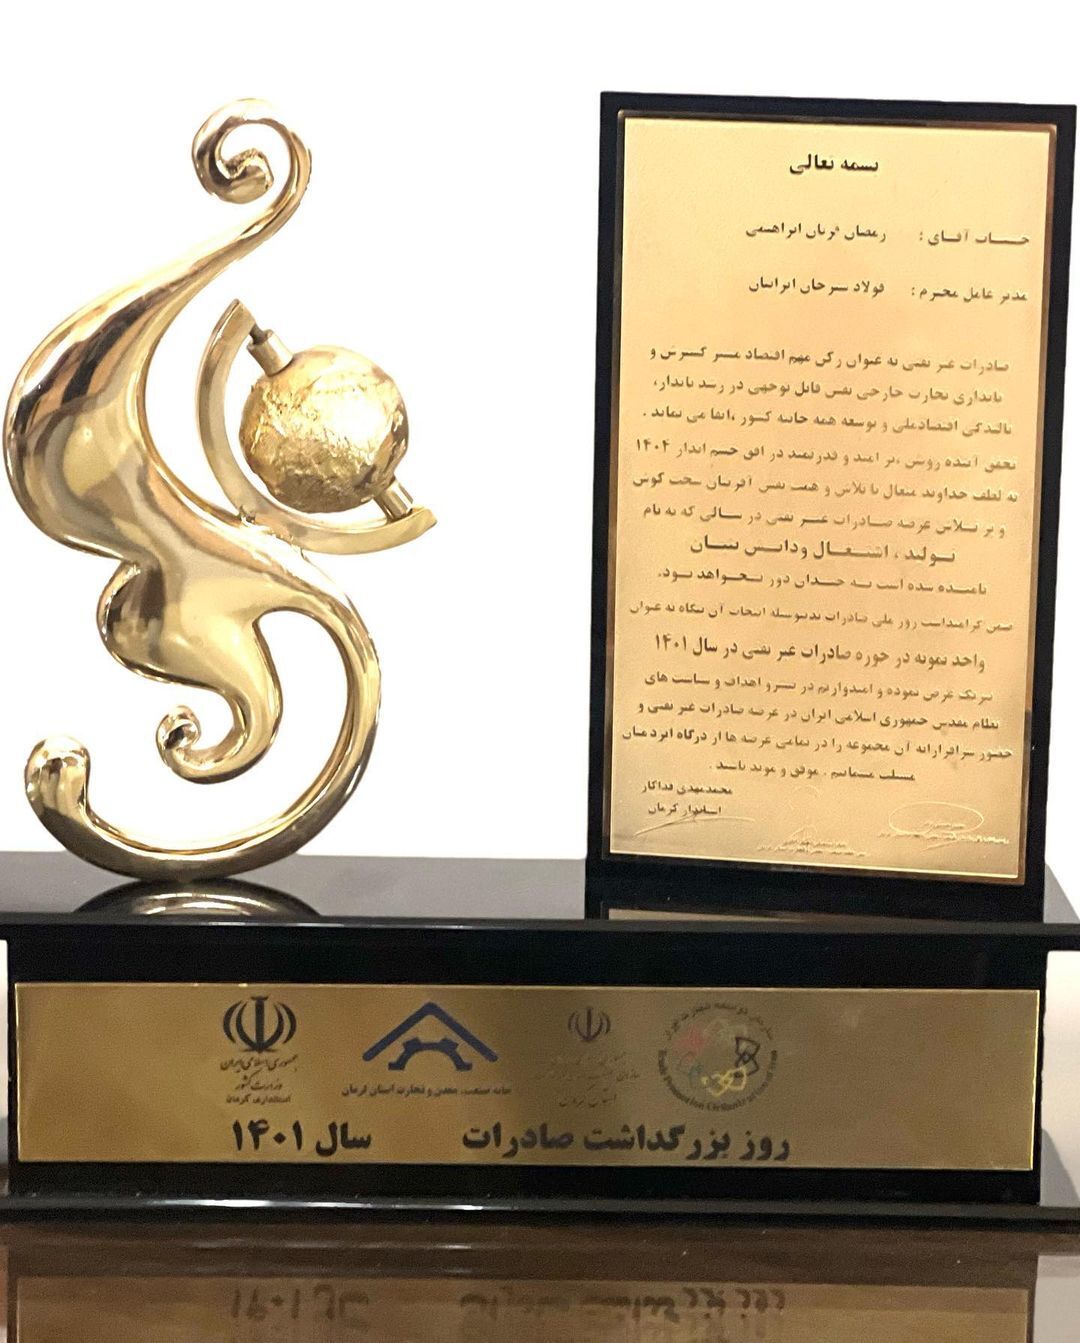 بسمه تعالی
جناب آقای : رمضان قربان ابراهیمی
مدیر عامل محترم : فولاد سیرجان ایرانیان
صادرات غیر نفتی به عنوان رکن مهم اقتصاد مسیر گسترش و
پایداری تجارت خارجی نقش قابل توجهی در رشد پایدار،
بالندگی اقتصادملی و توسعه همه جانبه کشور ،ایفا می نماید .
تحقق آینده روشن ،بر امید و قدرتمند در افق چشم انداز ۱۴۰۴
به لطف خداوند متعال با تلاش و همت نقش آفرینان سخت کوش
و پر تلاش عرصه صادرات غیر نفتی در سالی که به نام
تولید ، اشتغال ودانش بنیان
نامیده شده است به چندان دور نخواهد بود.
ضمن گرامیداشت روز ملی صادرات بدینوسیله انتخاب آن بنگاه به عنوان
واحد نمونه در حوزه صادرات غیر نفتی در سال ۱۴۰۱
تبریک عرض نموده و امیدواریم در پیشبرد اهداف و سیاست های
نظام مقدس جمهوری اسلامی ایران در عرصه صادرات غیر نفتی و
حضور سرافرازانه آن مجموعه را در تمامی عرصه ها از درگاه ایزد منان
مسئلت مینماییم . موفق و موید باشید .
محمدمهدی فداکار
استاندار کرمان
جمهوری اسلامی ایران
وزارت کشور
استانداری کرمان
خانه صنعت، معدن و تجارت استان کرمان
سازمان توسعه تجارت ایران
Trade Promotion Organization of Iran
روز بزرگداشت صادرات سال ۱۴۰۱